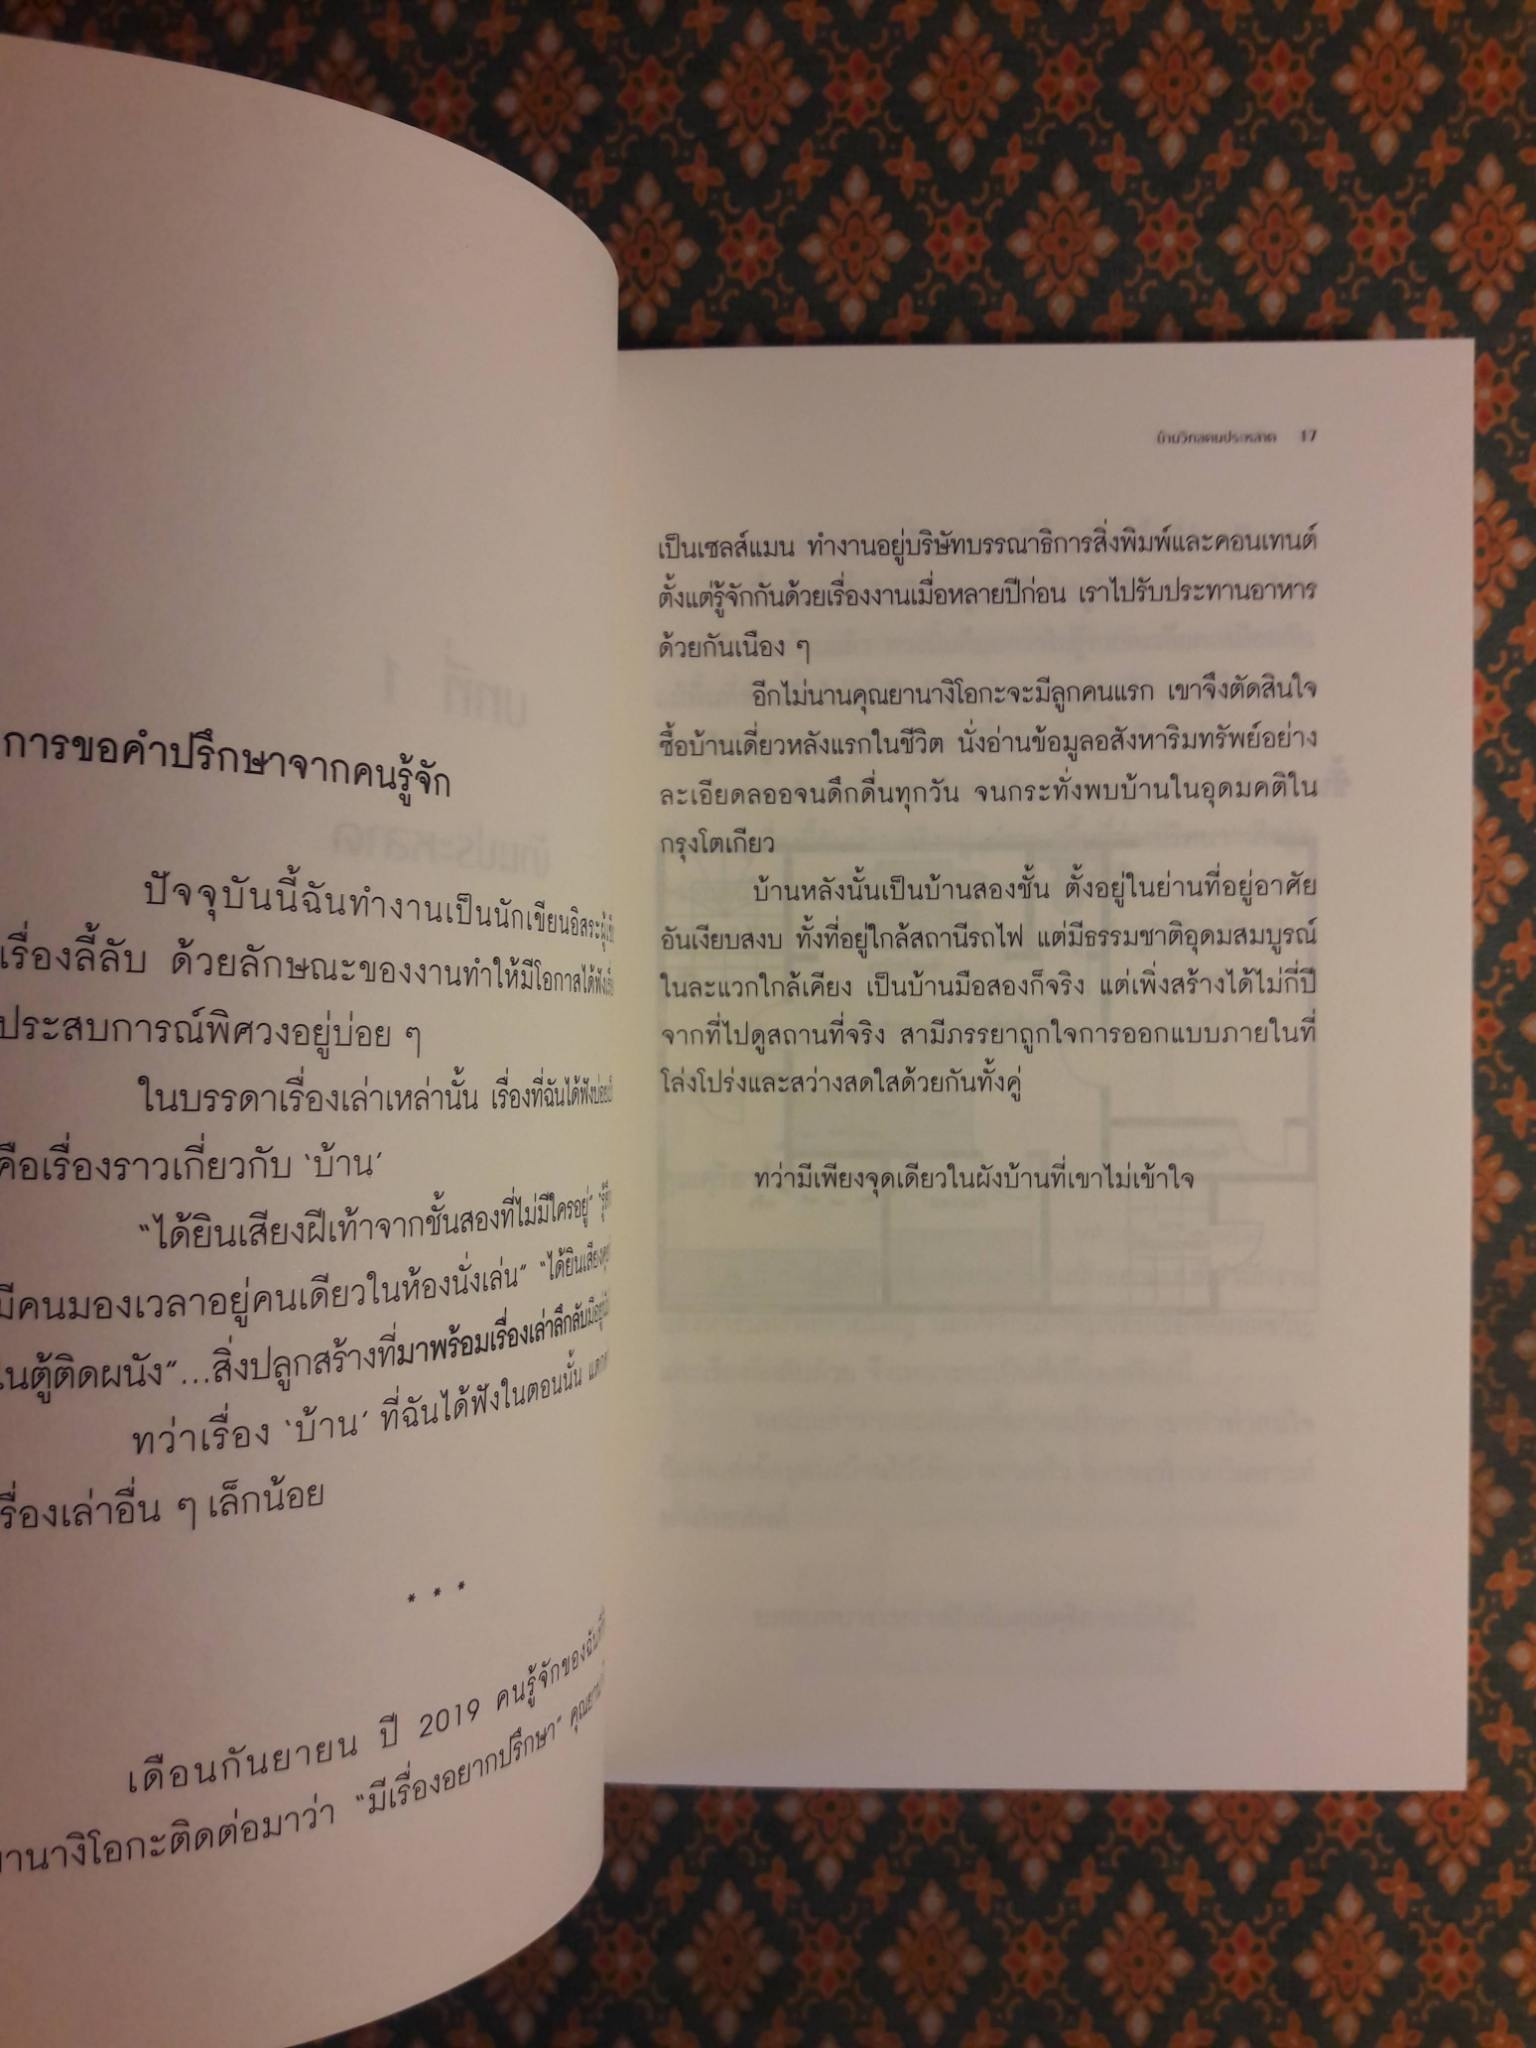 การขอคำปรึกษาจากคนรู้จัก
ปัจจุบันนี้ฉันทำงานเป็นนักเขียนอิสระ
เรื่องลี้ลับ ด้วยลักษณะของงานทำให้มีโอกาสได้ฟัง
ประสบการณ์พิศวงอยู่บ่อย ๆ
ในบรรดาเรื่องเล่าเหล่านั้น เรื่องที่ฉันได้ฟังบ่อย
คือเรื่องราวเกี่ยวกับ ‘บ้าน’
“ได้ยินเสียงฝีเท้าจากชั้นสองที่ไม่มีใครอยู่”
มีคนมองเวลาอยู่คนเดียวในห้องนั่งเล่น” “ได้ยินเสียง
ในตู้ติดผนัง”...สิ่งปลูกสร้างที่มาพร้อมเรื่องเล่าลึกลับมี
ทว่าเรื่อง ‘บ้าน’ ที่ฉันได้ฟังในตอนนั้น
เรื่องเล่าอื่น ๆ เล็กน้อย
* * *
เดือนกันยายน ปี 2019 คนรู้จักของฉัน
ยานางิโอกะติดต่อมาว่า “มีเรื่องอยากปรึกษา”
บ้านวิกลคนประหลาด 17
เป็นเซลส์แมน ทำงานอยู่บริษัทบรรณาธิการสิ่งพิมพ์และคอนเทนต์
ตั้งแต่รู้จักกันด้วยเรื่องงานเมื่อหลายปีก่อน เราไปรับประทานอาหาร
ด้วยกันเนือง ๆ
อีกไม่นานคุณยานางิโอกะจะมีลูกคนแรก เขาจึงตัดสินใจ
ซื้อบ้านเดี่ยวหลังแรกในชีวิต นั่งอ่านข้อมูลอสังหาริมทรัพย์อย่าง
ละเอียดลออจนดึกดื่นทุกวัน จนกระทั่งพบบ้านในอุดมคติใน
กรุงโตเกียว
บ้านหลังนั้นเป็นบ้านสองชั้น ตั้งอยู่ในย่านที่อยู่อาศัย
อันเงียบสงบ ทั้งที่อยู่ใกล้สถานีรถไฟ แต่มีธรรมชาติอุดมสมบูรณ์
ในละแวกใกล้เคียง เป็นบ้านมือสองก็จริง แต่เพิ่งสร้างได้ไม่กี่ปี
จากที่ไปดูสถานที่จริง สามีภรรยาถูกใจการออกแบบภายในที่
โล่งโปร่งและสว่างสดใสด้วยกันทั้งคู่
ทว่ามีเพียงจุดเดียวในผังบ้านที่เขาไม่เข้าใจ